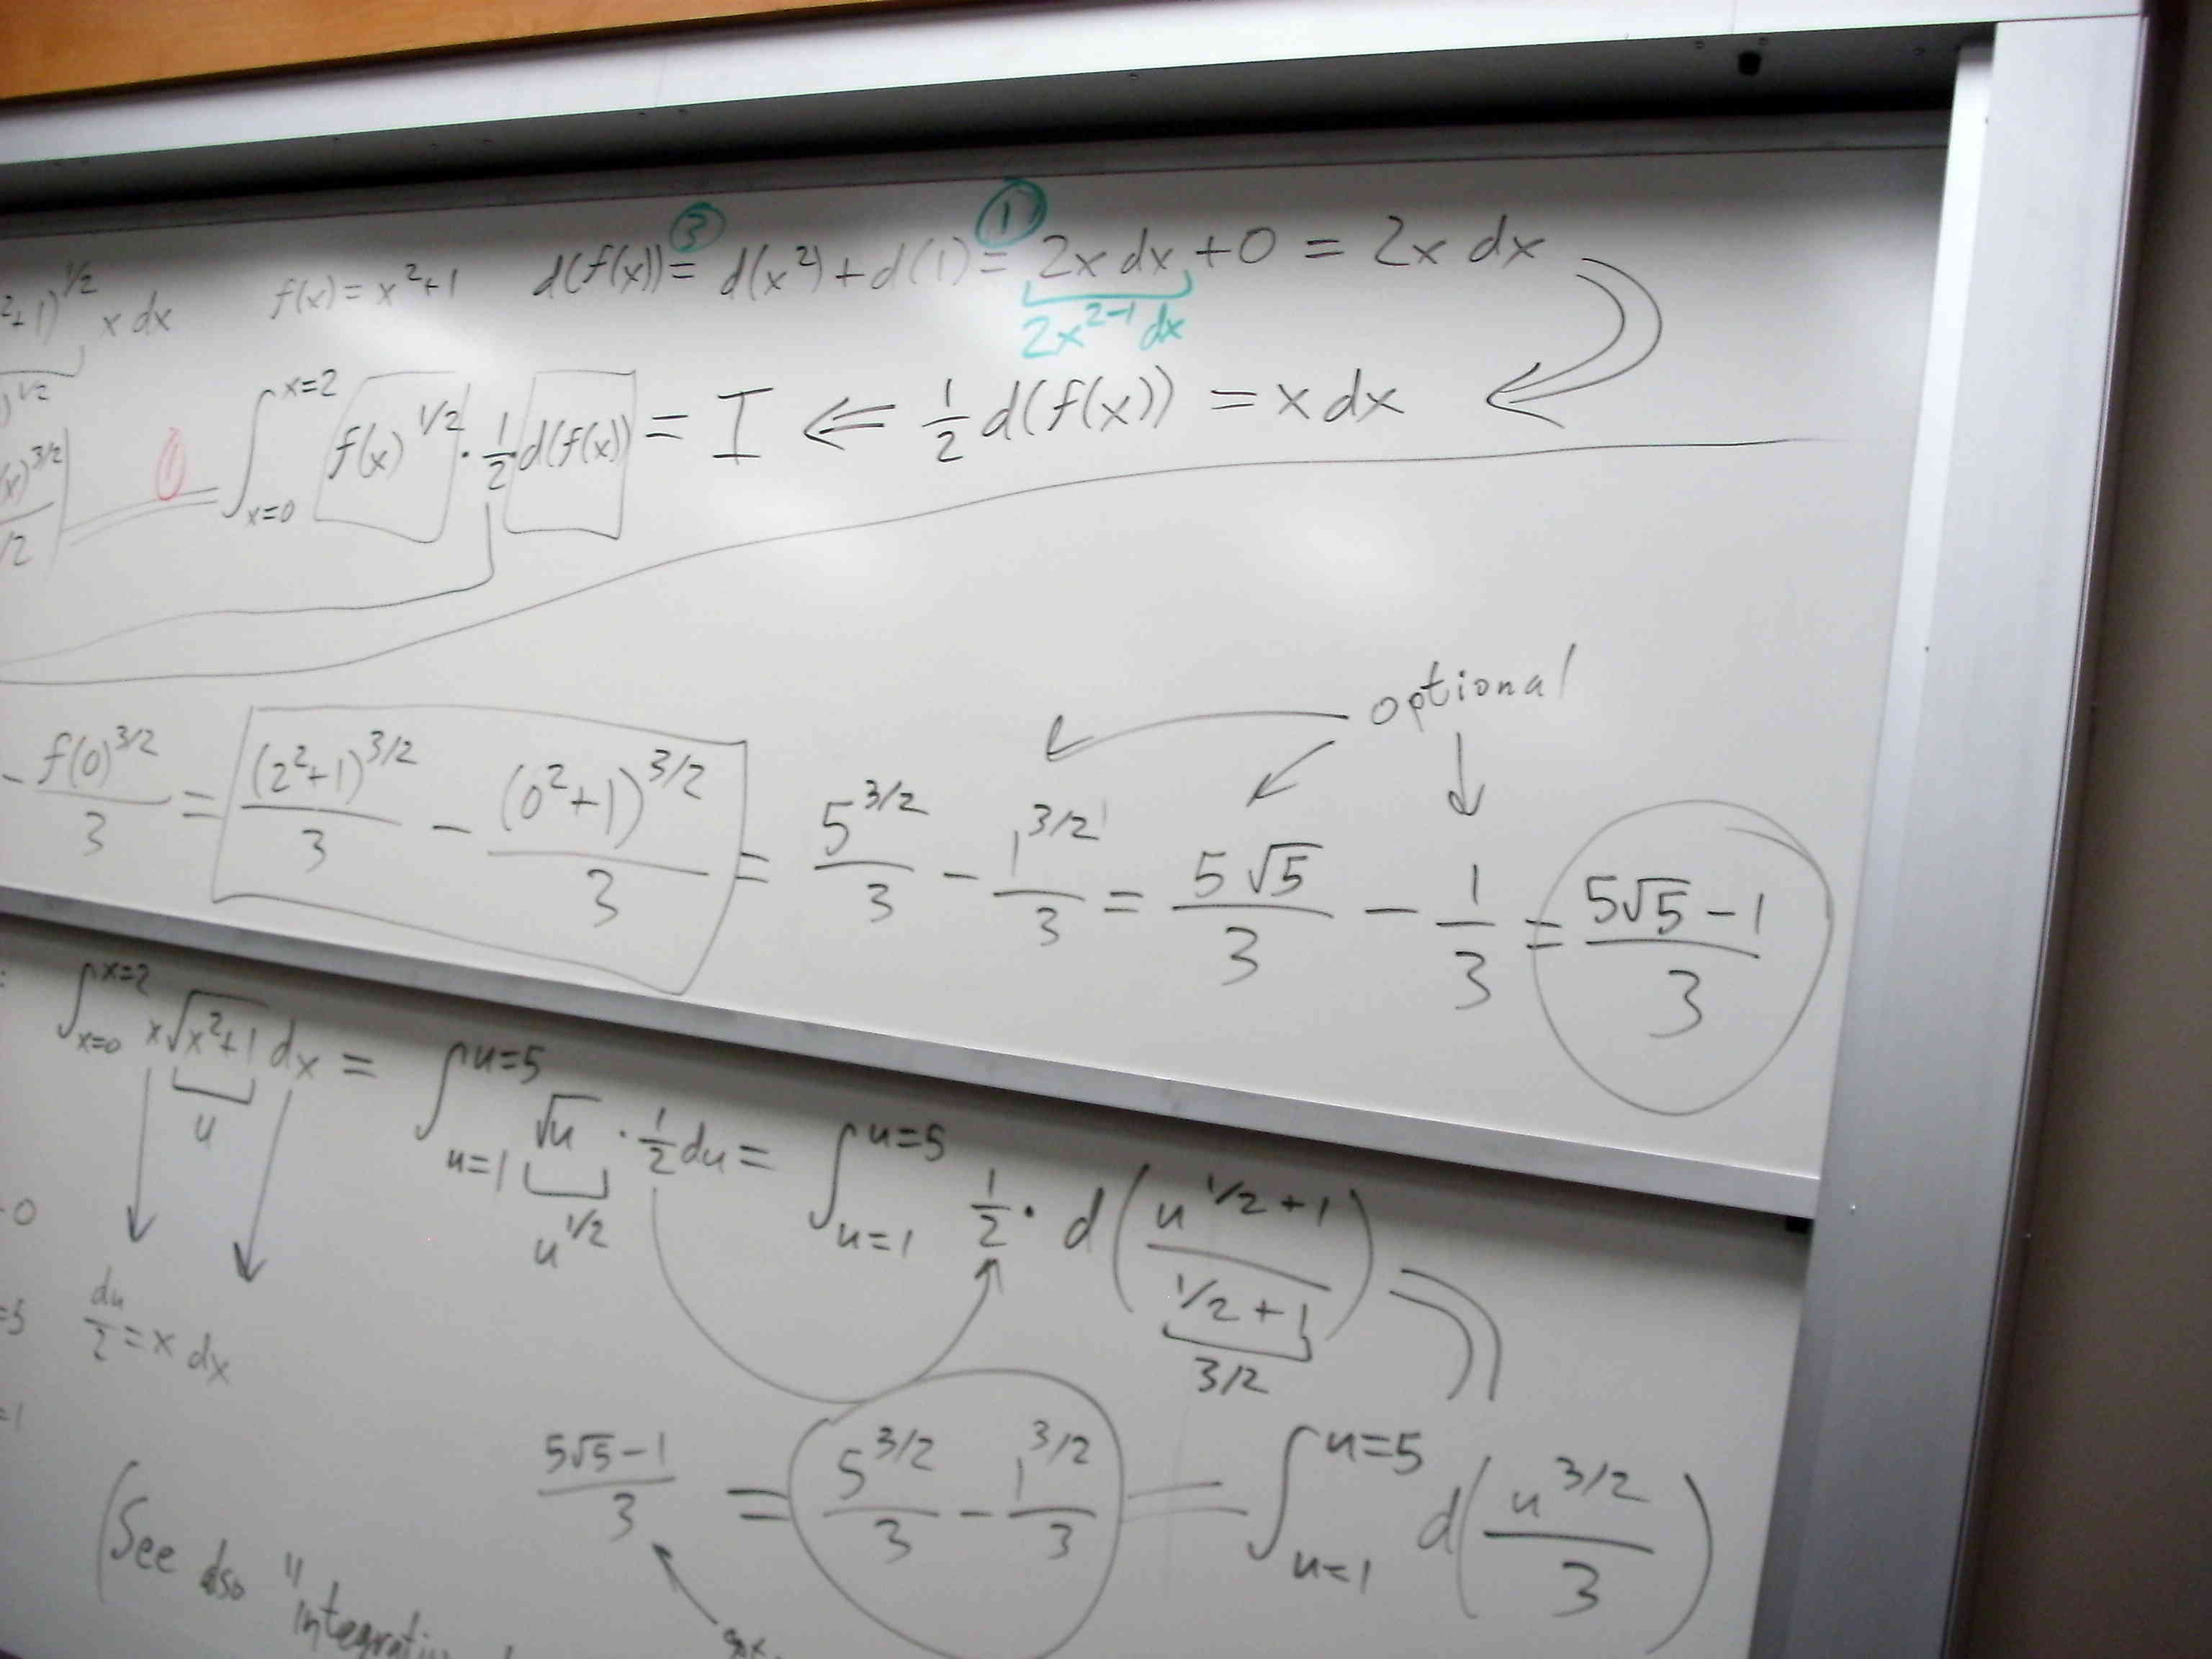 ²+1)^1/2 x dx   f(x) = x²+1   d(f(x)) =③ d(x²) + d(1) =① 2x dx + 0 = 2x dx
2x^2-1 dx
)^1/2
(x)^3/2 /2 = ∫_x=0^x=2 f(x)^1/2 · 1/2 · d(f(x)) = I ⇐ 1/2 d(f(x)) = x dx
optional
- f(0)^3/2 / 3 = (2²+1)^3/2 / 3 - (0²+1)^3/2 / 3 = 5^3/2 / 3 - 1^3/2 / 3 = 5√5 / 3 - 1/3 = (5√5 - 1) / 3
: ∫_x=0^x=2 x√(x²+1) dx = ∫_u=1^u=5 √u · 1/2 du = ∫_u=1^u=5 1/2 · d(u^1/2+1 / (1/2+1))
u
u^1/2
3/2
0
=5   du/2 = x dx
=1
(5√5 - 1) / 3 = 5^3/2 / 3 - 1^3/2 / 3 = ∫_u=1^u=5 d(u^3/2 / 3)
(See also "integrati